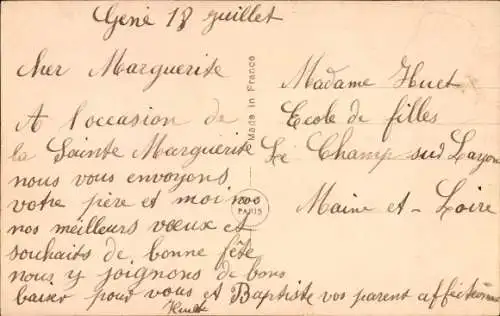 Gené 18 Juillet
Cher Marguerite
A l'occasion de
la Sainte Marguerite
nous vous envoyons
votre père et moi nos
nos meilleurs voeux et
souhaits de bonne fête
nous y joignons de bons
baiser pour vous et Baptiste vos parent affectionné
Huet
Made in France
PARIS
Madame Huet
Ecole de filles
Le Champ sud Layon
Maine et - Loire